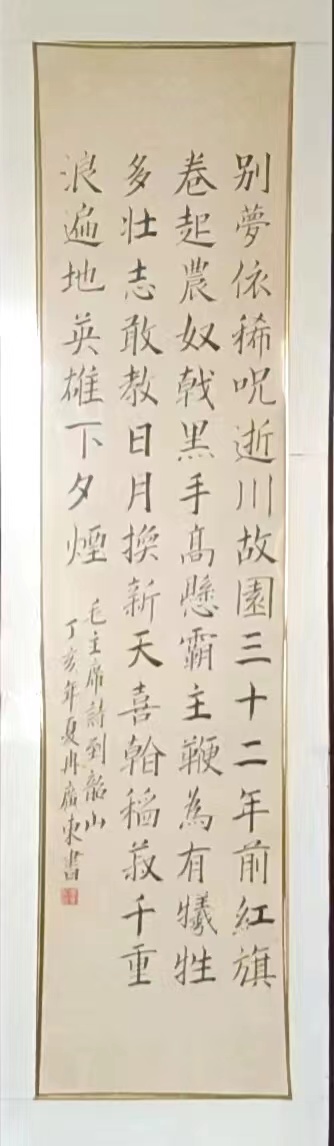 别夢依稀呪逝川故園三十二年前紅旗
卷起農奴戟黑手髙懸霸主鞭為有犧牲
多壮志敢教日月換新天喜看稻菽千重
浪遍地英雄下夕煙
毛主席詩到韶山
丁亥年夏冉廣東書